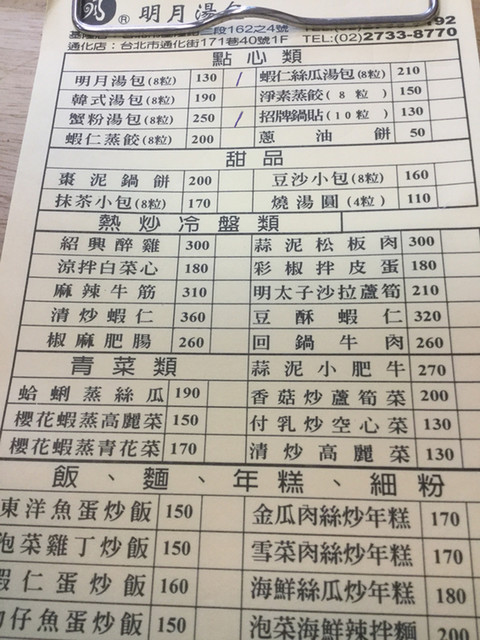 ® 明月湯包
段162之4號
通化店：台北市通化街171巷40號1F TEL:(02)2733-8770
點心類
明月湯包(8粒) 130 / 蝦仁絲瓜湯包(8粒) 210
韓式湯包(8粒) 190 淨素蒸餃(8粒) 150
蟹粉湯包(8粒) 250 / 招牌鍋貼(10粒) 130
蝦仁蒸餃(8粒) 200 蔥油餅 50
甜品
棗泥鍋餅 200 豆沙小包(8粒) 160
抹茶小包(8粒) 170 燒湯圓(4粒) 110
熱炒冷盤類
紹興醉雞 300 蒜泥松板肉 300
涼拌白菜心 180 彩椒拌皮蛋 180
麻辣牛筋 310 明太子沙拉蘆筍 210
清炒蝦仁 360 豆酥蝦仁 320
椒麻肥腸 260 回鍋牛肉 260
青菜類 蒜泥小肥牛 270
蛤蜊蒸絲瓜 190 香菇炒蘆筍菜 200
櫻花蝦蒸高麗菜 150 付乳炒空心菜 130
櫻花蝦蒸青花菜 170 清炒高麗菜 130
飯、麵、年糕、細粉
東洋魚蛋炒飯 150 金瓜肉絲炒年糕 170
泡菜雞丁炒飯 150 雪菜肉絲炒年糕 170
蝦仁蛋炒飯 160 海鮮絲瓜炒年糕 180
仔魚蛋炒飯 150 泡菜海鮮辣拌麵 200